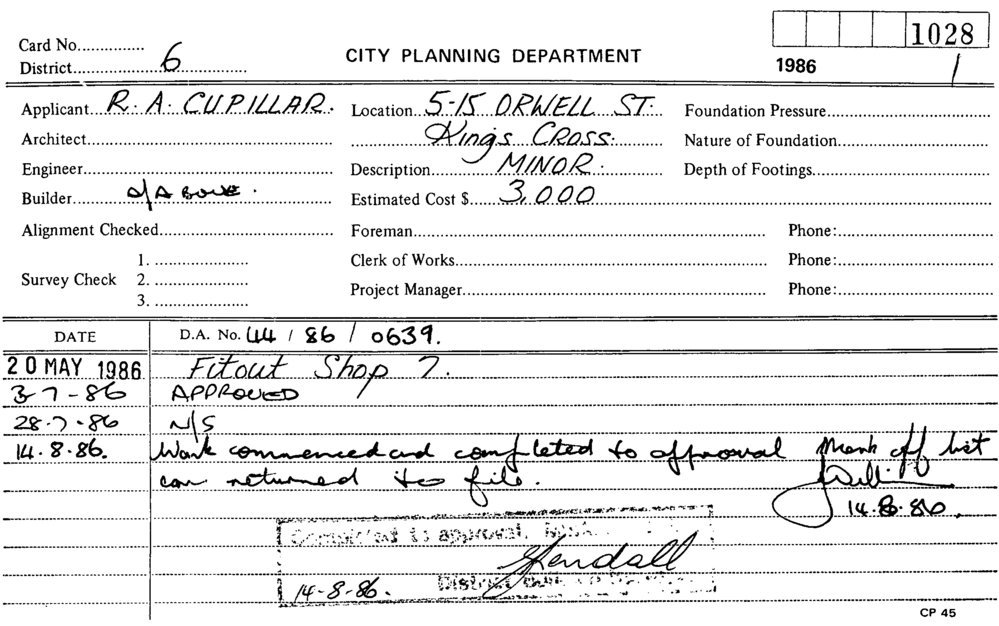 Card No...............
District 6
CITY PLANNING DEPARTMENT
1028
1986
1
Applicant R. A. CUPILLAR.
Location 5-15 ORWELL ST.
Foundation Pressure
Architect
Kings CROSS.
Nature of Foundation
Engineer
Description MINOR.
Depth of Footings
Builder A/ABOVE.
Estimated Cost $ 3,000
Alignment Checked
Foreman
Phone:
Survey Check
1.
2.
3.
Clerk of Works
Phone:
Project Manager
Phone:
DATE
D.A. No. 44 / 86 / 0639.
20 MAY 1986
Fitout Shop 7.
3-7-86
APPROVED
28-7-86
N/S
14.8.86.
Work commenced and completed to approval Mark off list
can returned to file.
14.8.86.
Completed to approval.
Kendall
14-8-86.
District
CP 45